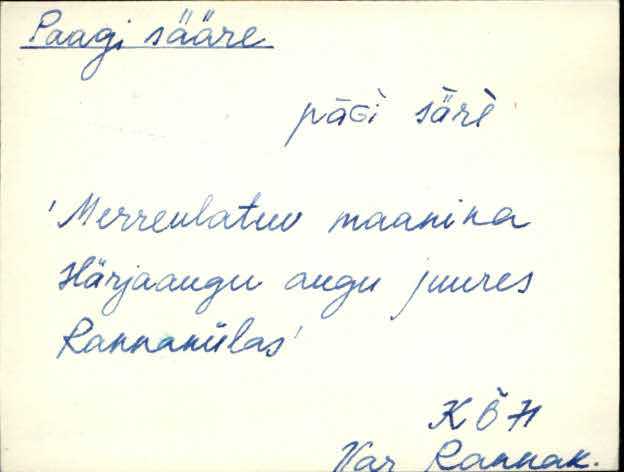 Paagi sääre
pāGi särè
'Merreulatuv maanina
Härjaaugu augu juures
Rannanülas'
KÕH
Var Rannak.